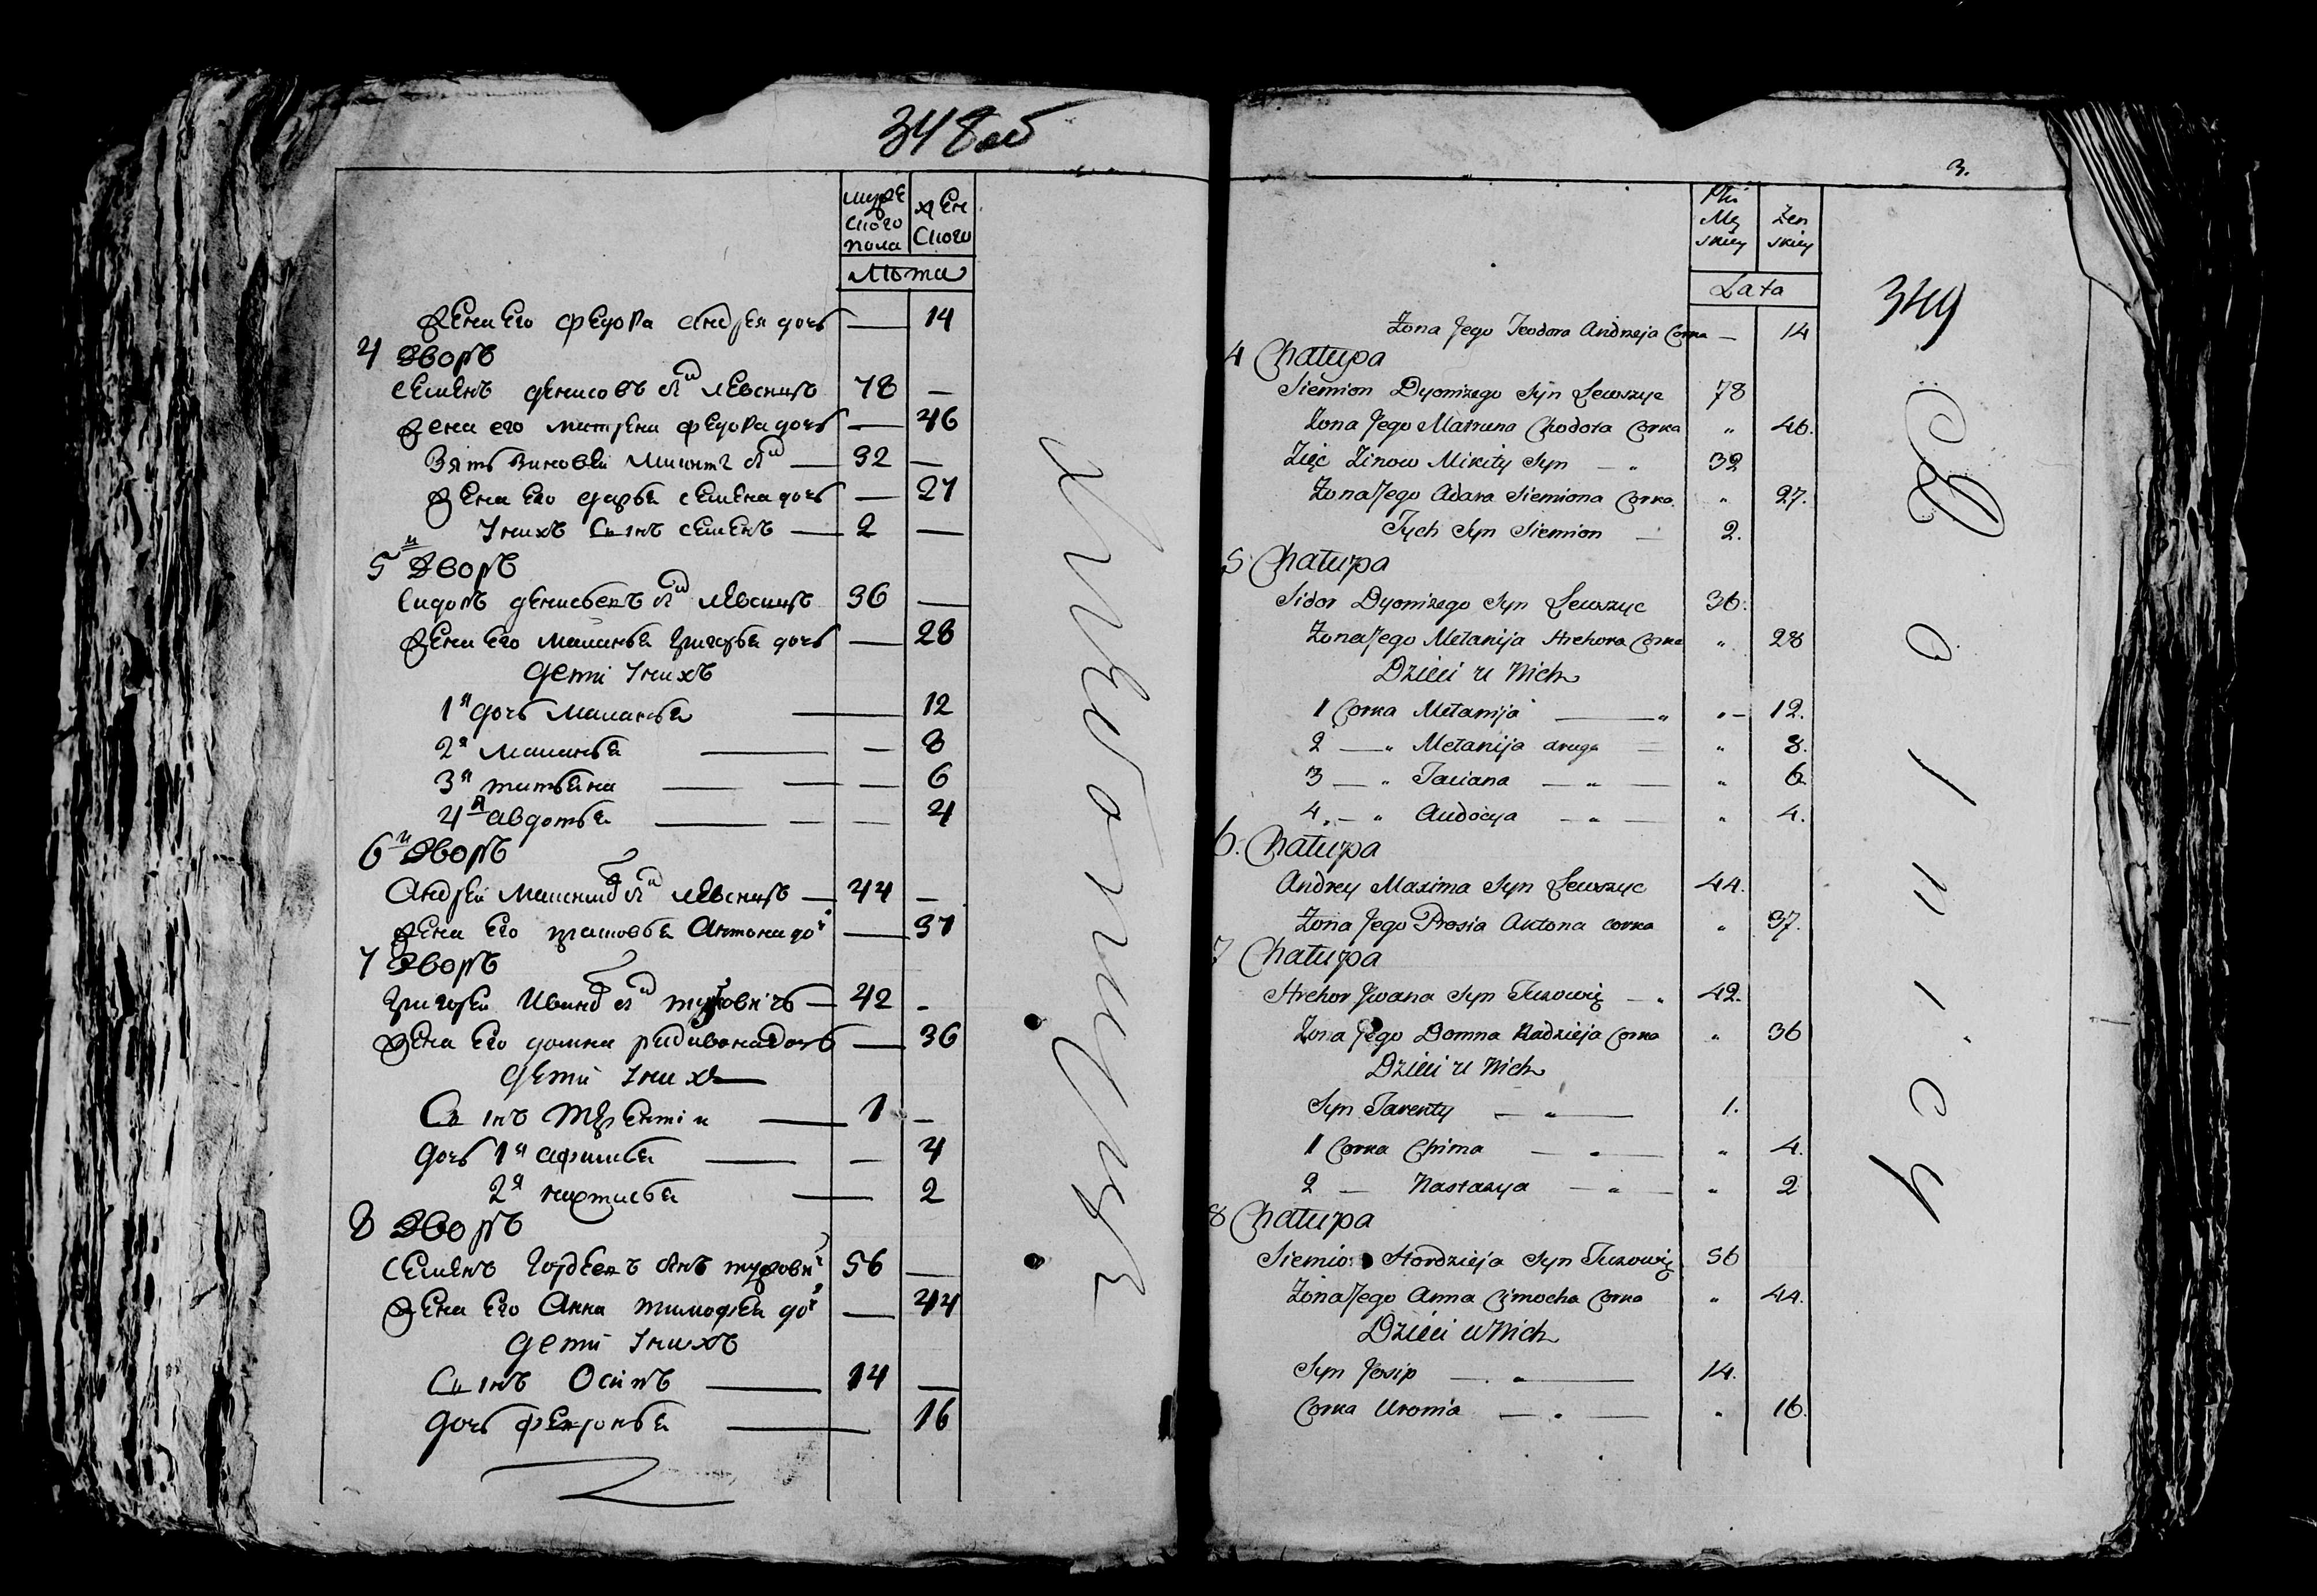 348 об
мужескаго пола
женскаго
Лѣта
Жена Его Федора Андрея дочь — 14
4 Дворъ
Семенъ Денисовъ сн҃ъ Левсицъ 78 —
Жена его Матрена Федора дочь — 46
Зять Зиновей Микит сн҃ъ — 32 —
Жена Его Дарья Семена дочь — 27
У них Сынъ Семенъ — 2 —
5й Дворъ
Сидоръ Денисьевъ сн҃ъ Левсицъ 36 —
Жена Его Маланья Григорья дочь — 28
Дети У них
1я дочь Маланья — 12
2я Маланья — — 8
3я Татьяна — — — 6
4я Авдотья — — — 4
6й Дворъ
Андрей Максимов сн҃ъ Левсицъ — 44 —
Жена Его Антона до — 37
7 Дворъ
Григорей Иванов сн҃ъ — 42 -
Жена Его Домна дочь — 36
Дети У них —
Сынъ Терентiй — 1 —
Дочь 1я Афимья — — 4
2я Настасья — 2
8 Дворъ
Семенъ Гордеевъ сынъ 56 —
Жена Его Анна Тимофея до — 44
Дети У них
Сынъ Осипъ — 14 —
Дочь — 16
3.
349
Płci Męzkiey
Żenskiey
Lata
Żona Jego Teodora Andrzeja Corka — 14
4 Chałupa
Siemion Dyonizego Syn Lewszyc 78
Żona Jego Matruna Chodora Corka „ 46.
Zięc Zinow Mikity Syn — „ 32
Żona Jego Adara Siemiona Corka. „ 27.
Tych Syn Siemion — 2.
5 Chałupa
Sidor Dyonizego Syn Lewszyc 36.
Żona Jego Mełanija Hrehora Corka „ 28
Dzieci u Nich
1 Corka Mełanija — „ „ — 12.
2 — „ Mełanija druga — „ 8.
3 — „ Taciana — „ — „ 6
4. — „ Audocya — „ — „ 4.
6. Chałupa
Andrey Maxima Syn Lewszyc 44.
Żona Jego Prosia Antona corka „ 37.
7 Chałupa
Hrehor Jwana Syn Turowic — „ 42.
Żona Jego Domna Radzieja Corka „ 36
Dzieci u Nich
Syn Tarenty — „ — 1.
1 Corka Chima — „ — „ 4.
2 — Nastazya — „ — „ 2
8 Chałupa
Siemion Hordzieja Syn Turowic 56
Żona Jego Anna Cimocha Corka „ 44.
Dzieci u Nich
Syn Josip — „ — 14.
Corka — „ — „ 16.